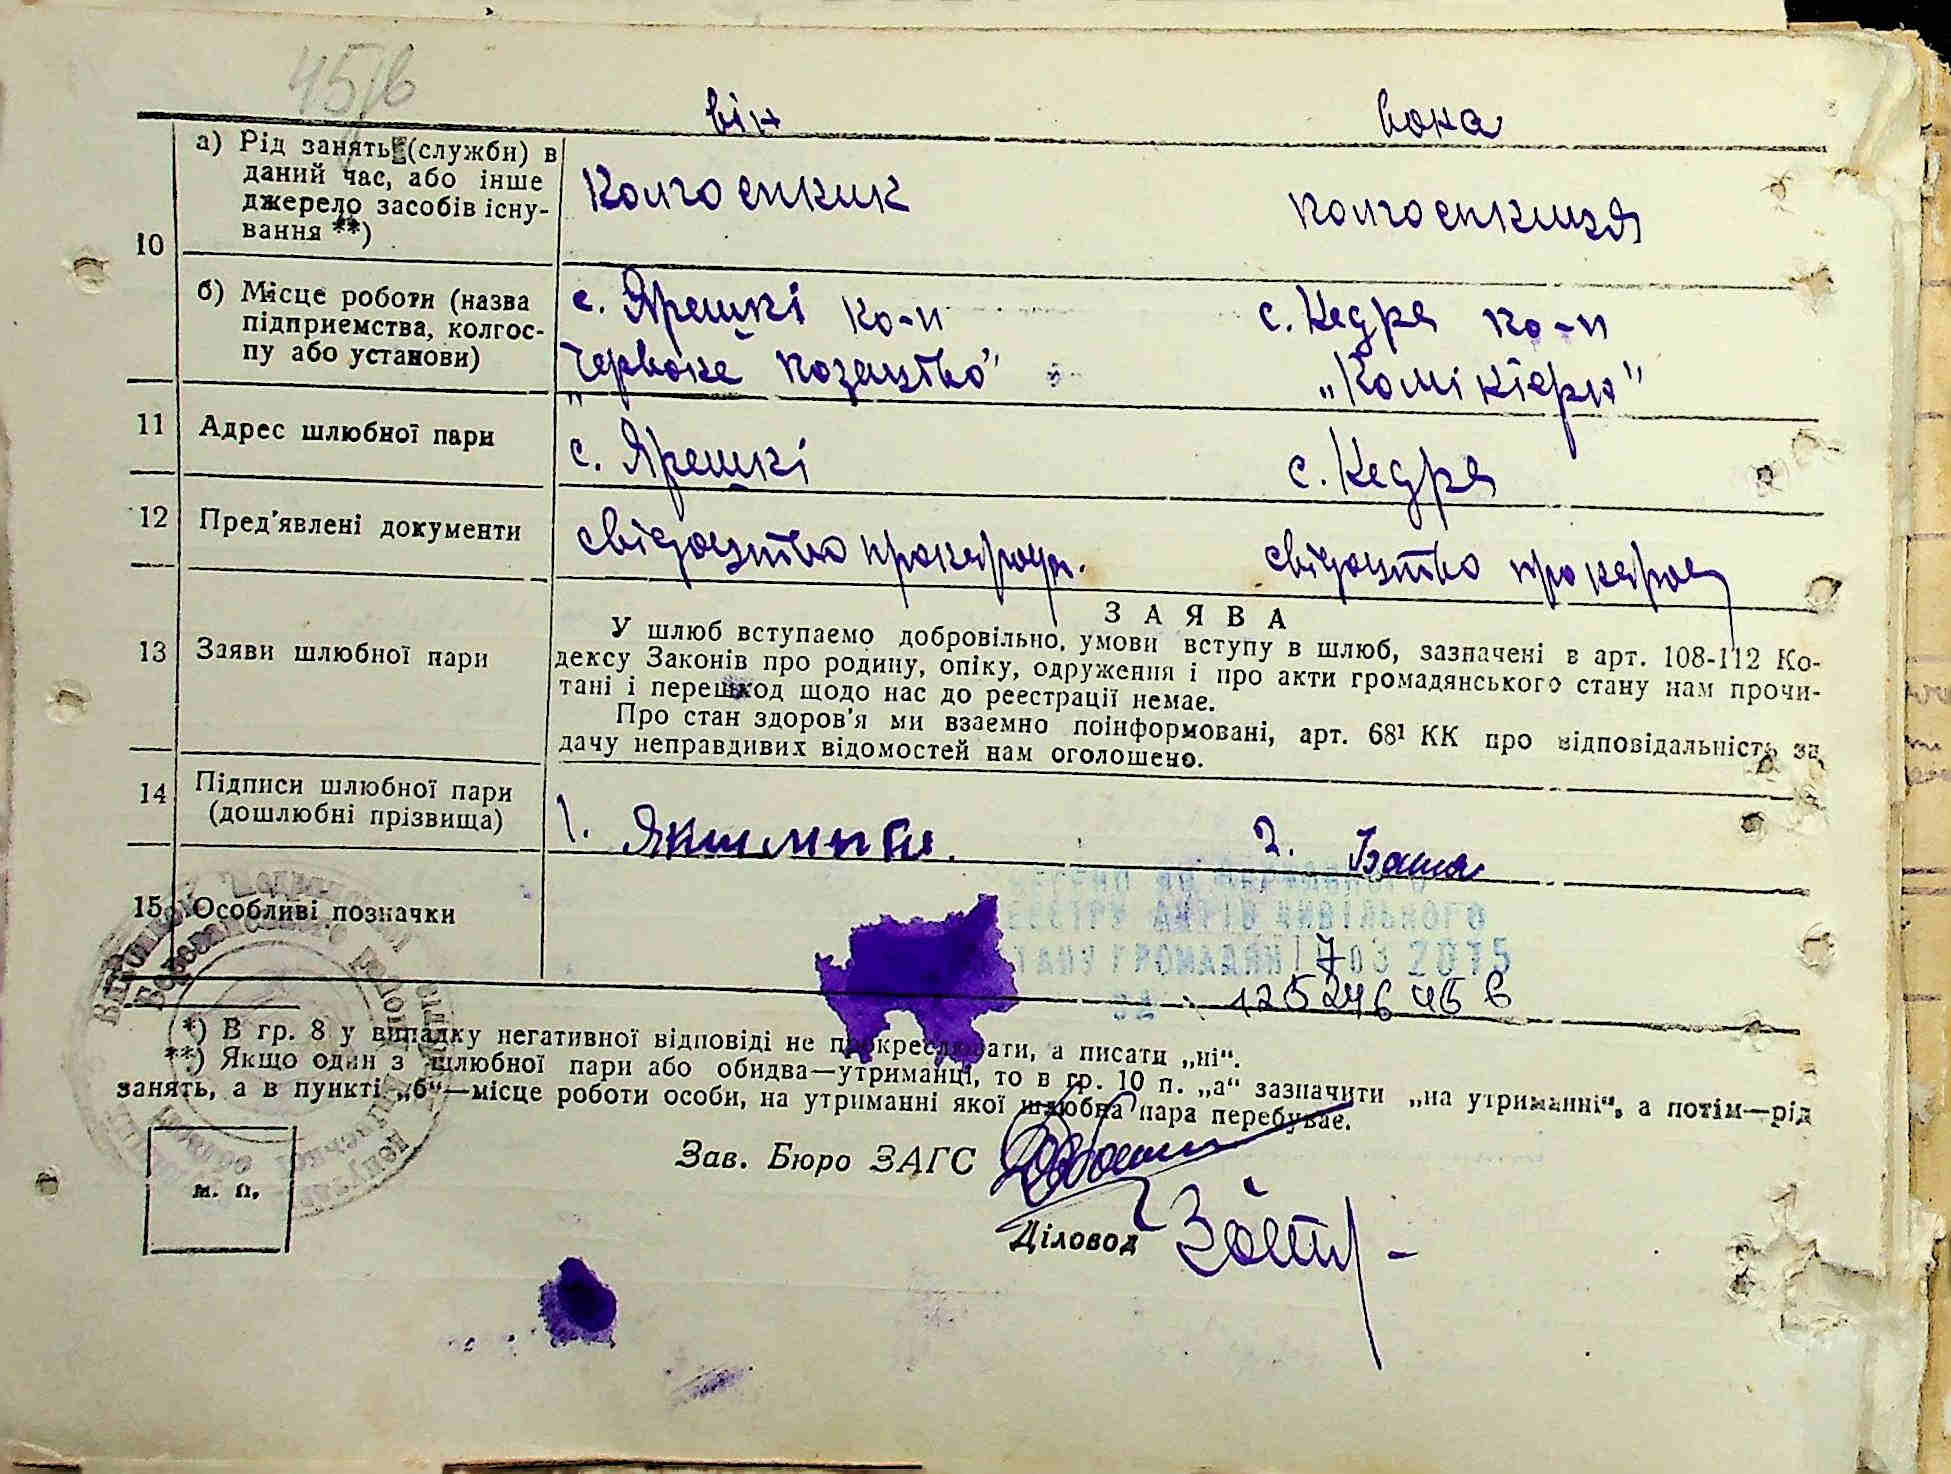 45/в
він вона
10
а) Рід занять (служби) в
даний час, або інше
джерело засобів існу-
вання **)
Колгоспник колгоспниця
б) Місце роботи (назва
підприємства, колгос-
пу або установи)
с. Ярешкі ко-п с. Кедра ко-п
„Червоне козацтво" „Комінтерн"
11 Адрес шлюбної пари
с. Ярешкі с. Кедра
12 Пред'явлені документи
свідоцтво про свідоцтво про
13 Заяви шлюбної пари
ЗАЯВА
У шлюб вступаємо добровільно, умови вступу в шлюб, зазначені в арт. 108-112 Ко-
дексу Законів про родину, опіку, одруження і про акти громадянського стану нам прочи-
тані і перешкод щодо нас до реєстрації немає.
Про стан здоров'я ми взаємно поінформовані, арт. 68¹ КК про відповідальність за
дачу неправдивих відомостей нам оголошено.
14 Підписи шлюбної пари
(дошлюбні прізвища)
1. 2.
15 Особливі позначки
ДО ДЕРЖАВНОГО
РЕЄСТРУ АКТІВ ЦИВІЛЬНОГО
СТАНУ ГРОМАДЯН 17 03 2015
*) В гр. 8 у випадку негативної відповіді не прокреслювати, а писати „ні“.
**) Якщо один з шлюбної пари або обидва—утриманці, то в гр. 10 п. „а“ зазначити „на утриманні“, а потім—рід
занять, а в пункті „б“—місце роботи особи, на утриманні якої шлюбна пара перебуває.
Зав. Бюро ЗАГС
м. п.
Діловод